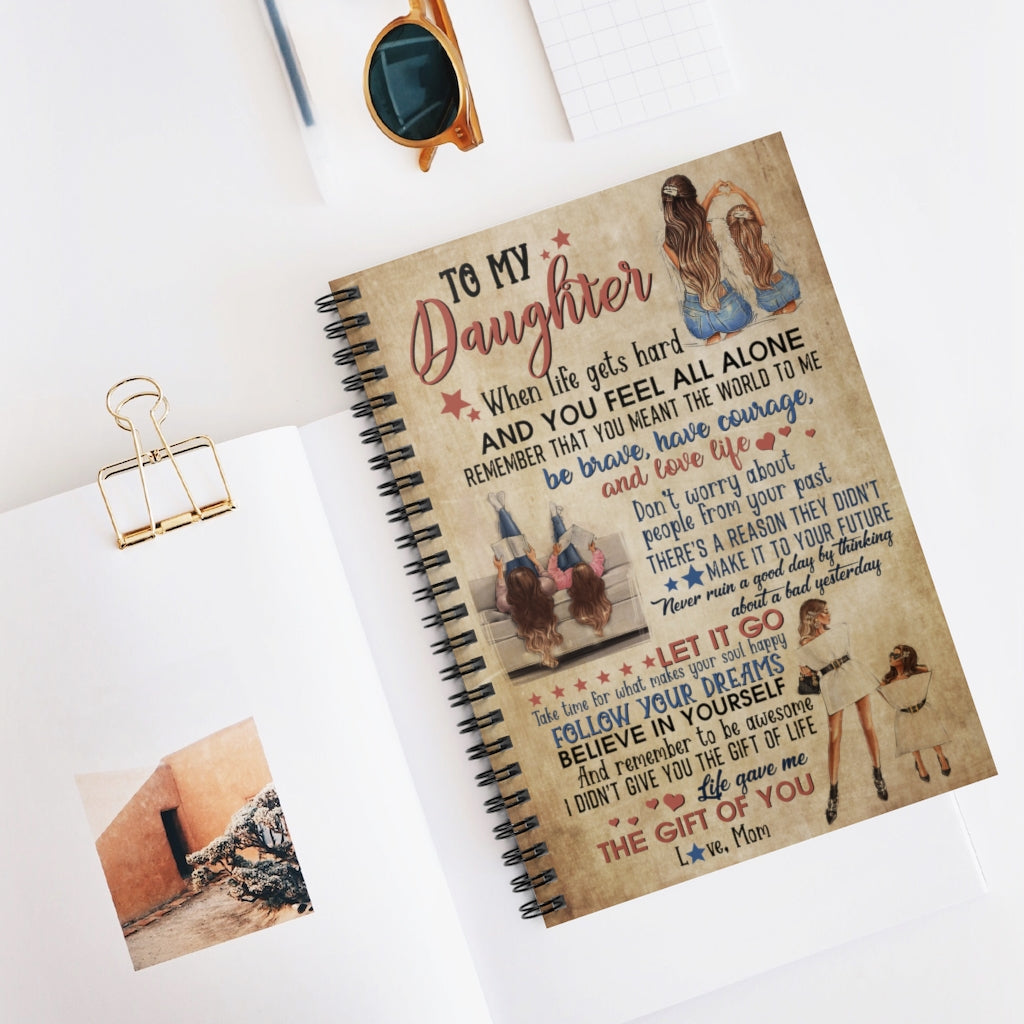 TO MY
Daughter
When life gets hard
AND YOU FEEL ALL ALONE
REMEMBER THAT YOU MEANT THE WORLD TO ME
be brave, have courage,
and love life
Don't worry about
people from your past
THERE'S A REASON THEY DIDN'T
MAKE IT TO YOUR FUTURE
Never ruin a good day by thinking
about a bad yesterday
LET IT GO
Take time for what makes your soul happy
FOLLOW YOUR DREAMS
BELIEVE IN YOURSELF
And remember to be awesome
I DIDN'T GIVE YOU THE GIFT OF LIFE
Life gave me
THE GIFT OF YOU
Love, Mom